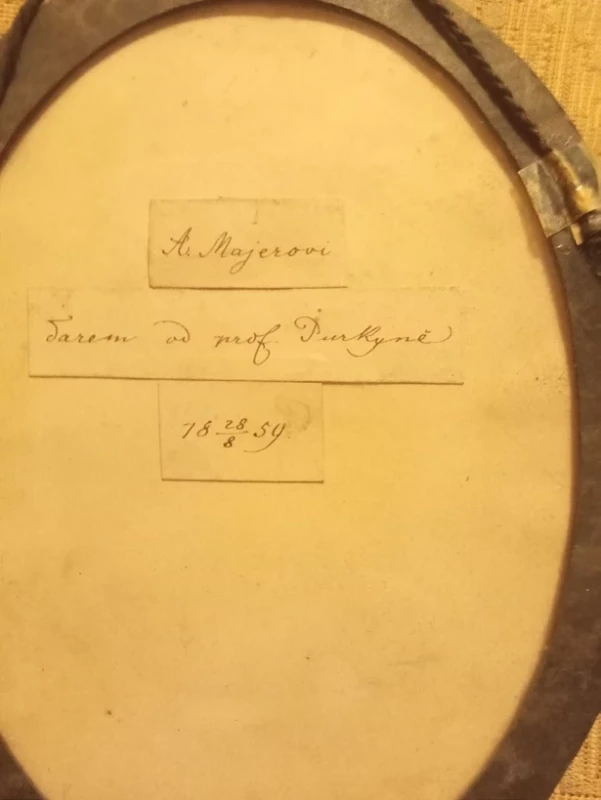 A. Majerovi
darem od prof. Purkyně
18 28/8 59.